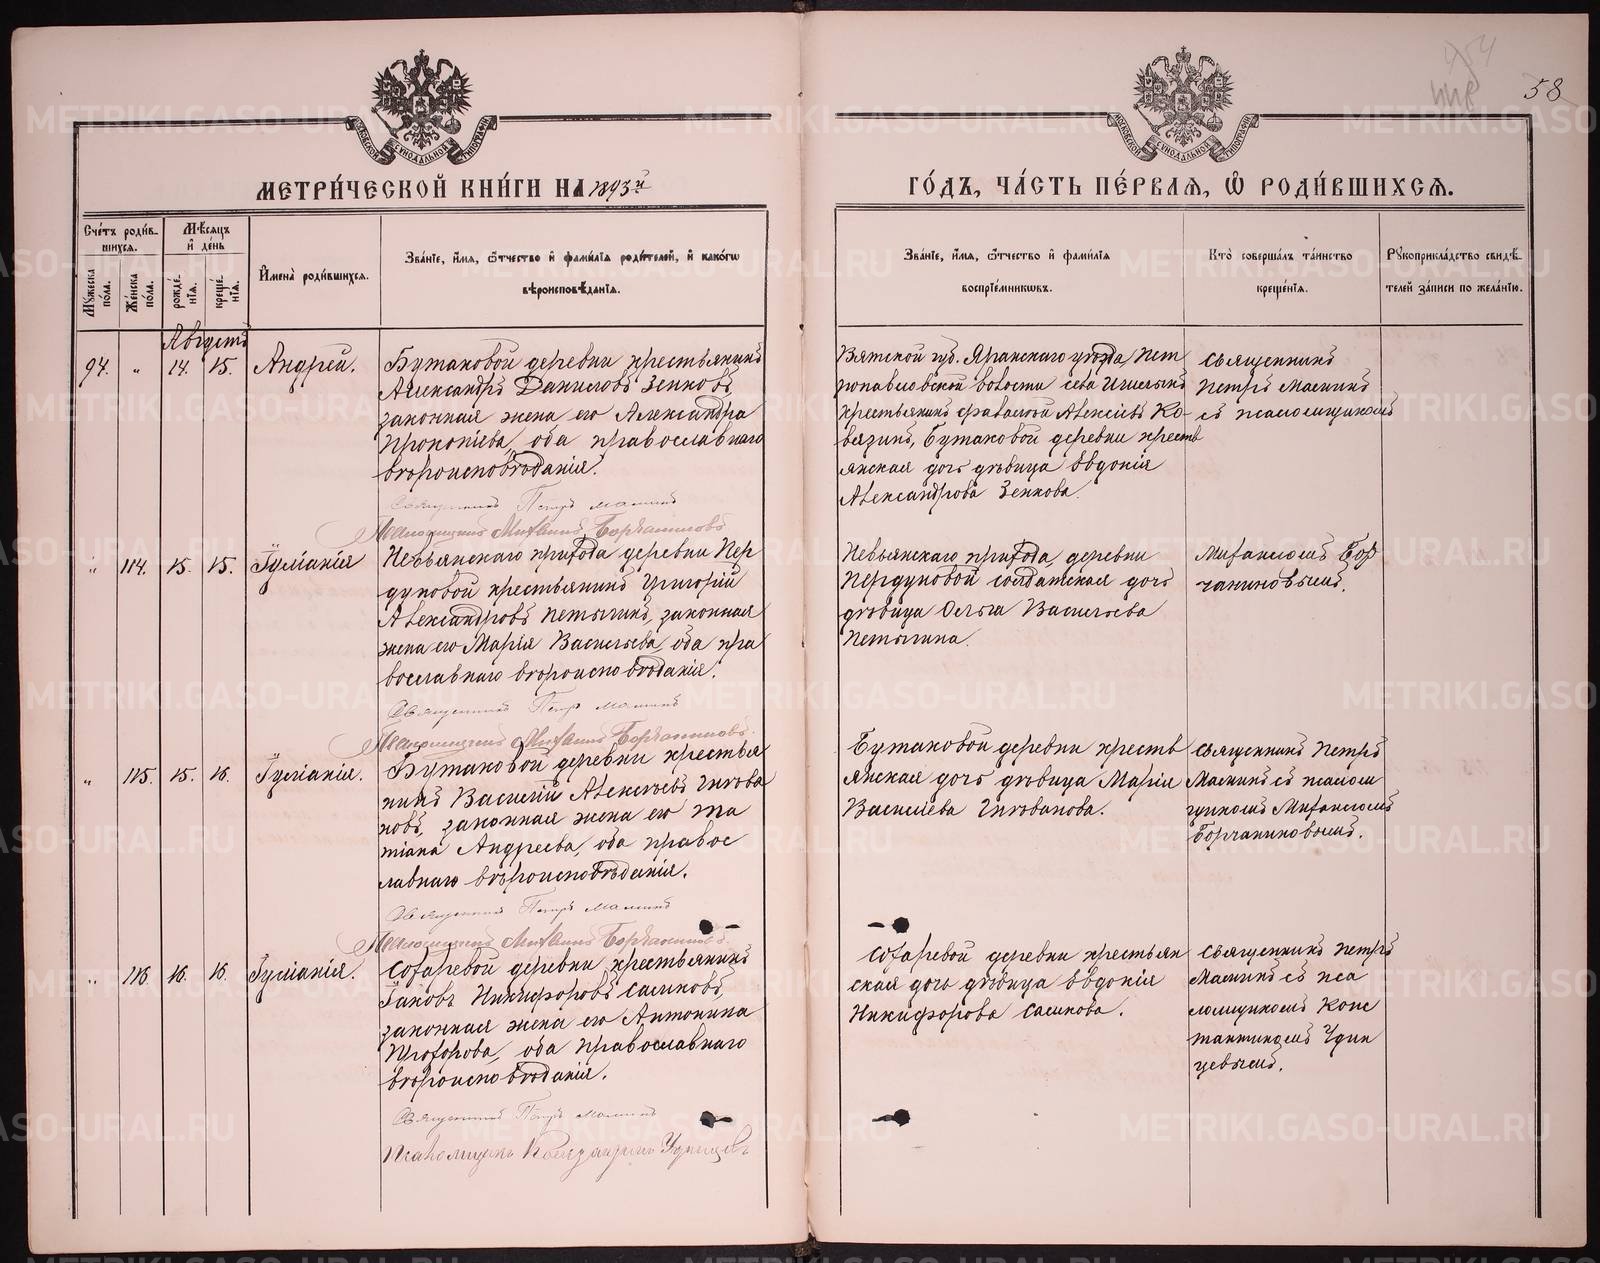 МЕТРИ́ЧЕСКОЙ КНИ́ГИ НА 1893й
ГО́ДЪ, ЧА́СТЬ ПЕ́РВАЯ, Ѽ РОДИ́ВШИХСЯ.
58
Сче́тъ роди́в-
шихся.
Му́жеска по́ла.
Же́нска по́ла.
Мѣ́сяцъ и҆ де́нь
рожде́-
нїя.
креще́-
нїя.
И҆мена̀ роди́вшихся.
Зва́нїе, и҆́мя, ѻ҆́тчество и҆ фами́лїя роди́телей, и҆ како́гѡ
вѣроисповѣ́данїя.
Зва́нїе, и҆́мя, ѻ҆́тчество и҆ фами́лїя
воспрїе́мниковъ.
Кто̀ соверша́лъ та́инство
креще́нїя.
Рꙋкоприкла́дство свидѣ́-
телей за́писи по жела́нїю.
Августъ
94. " 14. 15. Андрей.
Бутаковой деревни крестьянинъ
Александръ Даниловъ Зенковъ,
законная жена его Александра
Прокопіева, оба православнаго
вѣроисповѣданія.
Священникъ Петръ Маминъ
Псаломщикъ Михаилъ Борчаниновъ
Вятской губ. Яранскаго уѣзда, Пет
ропавловской волости села
крестьянинъ Алексіевъ Ко-
вязинъ, Бутаковой деревни кресть
янская дочь дѣвица Евдокія
Александрова Зенкова.
Священникъ
Петръ Маминъ
съ псаломщикомъ
" 114. 15. 15. Іуліанія
Невьянскаго прихода, деревни Пер
дуновой крестьянинъ Григорій
Александровъ Петыгинъ, законная
жена его Марія Васильева, оба пра
вославнаго вѣроисповѣданія.
Священникъ Петръ Маминъ
Псаломщикъ Михаилъ Борчаниновъ
Невьянскаго прихода, деревни
Пердуновой солдатская дочь
дѣвица Ольга Васильева
Петыгина.
Михаиломъ Бор
чаниновымъ.
" 115. 15. 16. Іуліанія.
Бутаковой деревни крестья
нинъ Василій Алексѣевъ Глѣба
новъ, законная жена его Та
тіана Андреева, оба правос
лавнаго вѣроисповѣданія.
Священникъ Петръ Маминъ
Псаломщикъ Михаилъ Борчаниновъ
Бутаковой деревни кресть
янская дочь дѣвица Марія
Василіева
Священникъ Петръ
Маминъ съ псалом
щикомъ Михаиломъ
Борчаниновымъ.
" 116. 16. 16. Іуліанія.
Сохаревой деревни крестьянинъ
Іаковъ Никифоровъ Саликовъ,
законная жена его Антонина
Прохорова, оба православнаго
вѣроисповѣданія.
Священникъ Петръ Маминъ
Псаломщикъ Константинъ Удинцевъ
Сохаревой деревни крестьян
ская дочь дѣвица Евдокія
Никифорова Саликова.
Священникъ Петръ
Маминъ съ пса
ломщикомъ Конс
тантиномъ Удин
цевымъ.
METRIKI.GASO-URAL.RU